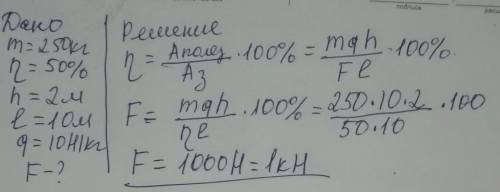 Дано
m=250кг
η=50%
h=2м
l=10м
g=10Н/кг
F-?
Решение
η = Aполез/Aз · 100% = mgh/Fl · 100%.
F = mgh/ηl · 100% = 250·10·2/50·10 · 100
F = 1000Н = 1кН